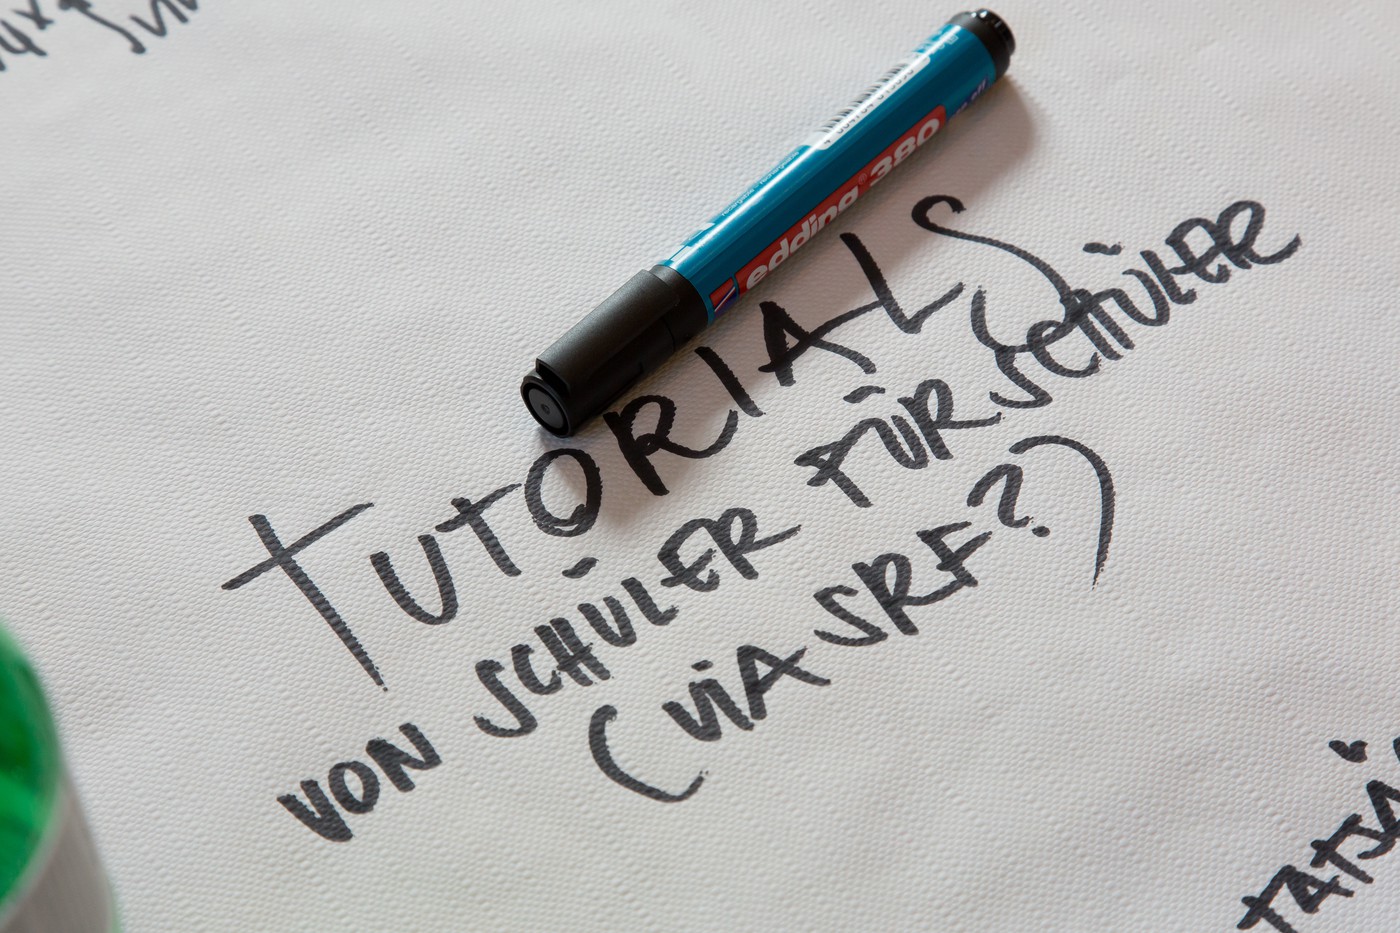 edding 380
TUTORIALS
VON SCHÜLER FÜR SCHÜLER
(VIA SRF?)